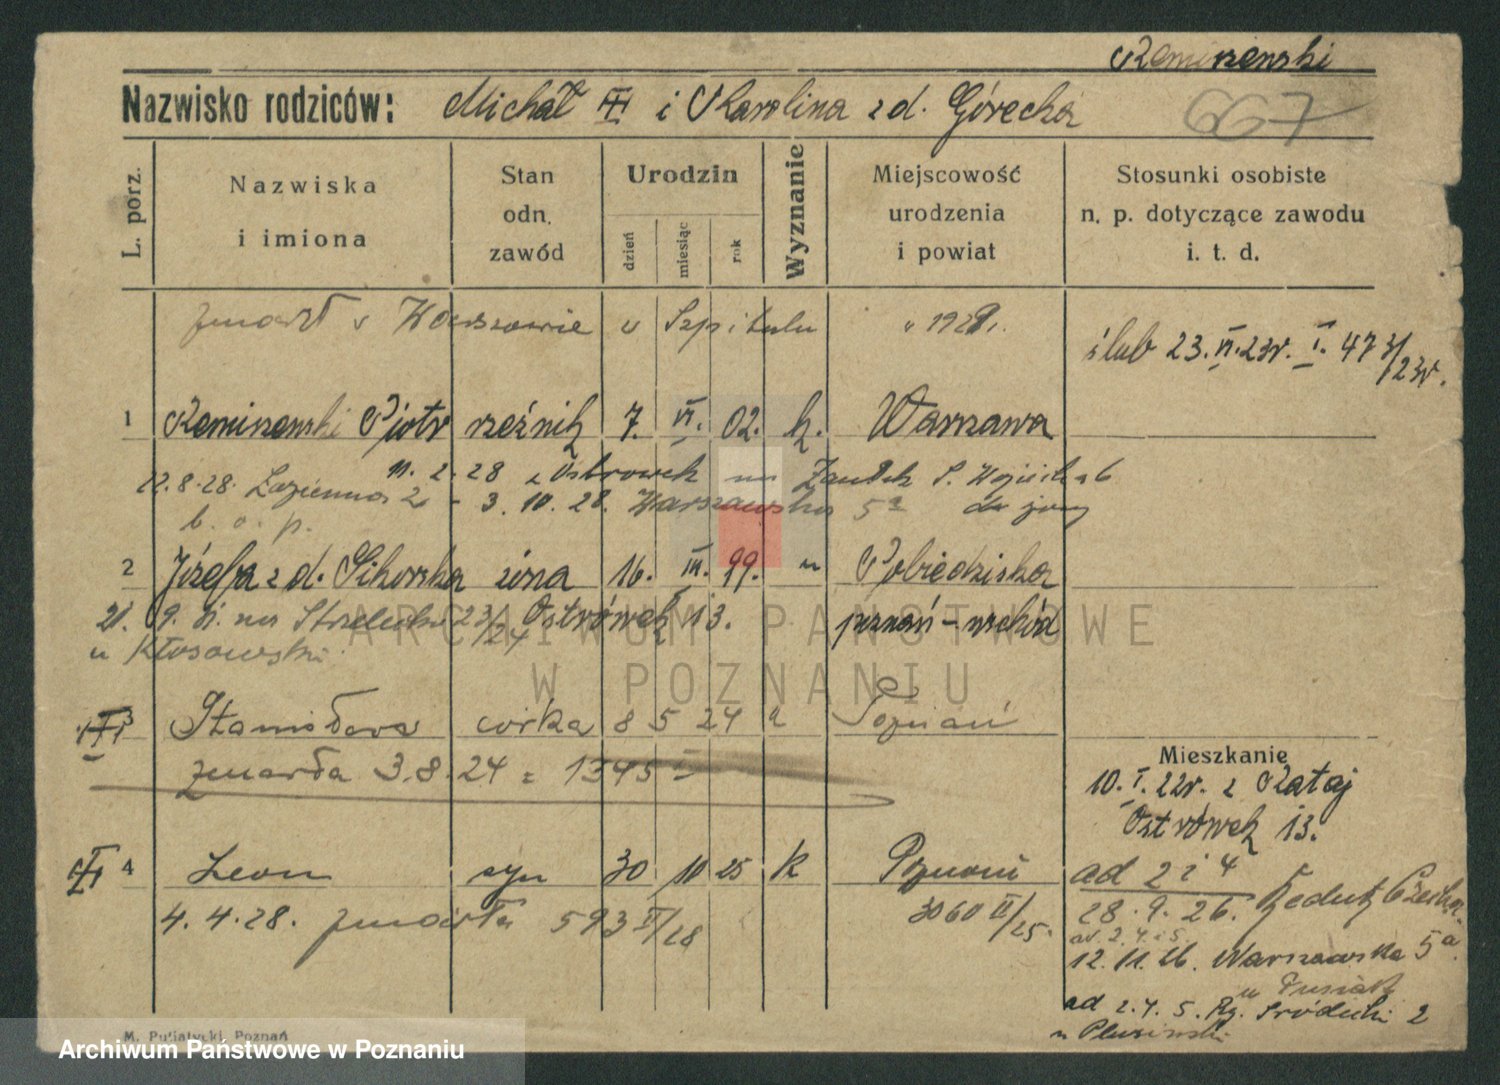 Remiszewski
Nazwisko rodziców: Michał i Karolina z d. Górecka
667
L. porz.
Nazwiska i imiona
Stan odn. zawód
Urodzin
dzień
miesiąc
rok
Wyznanie
Miejscowość urodzenia i powiat
Stosunki osobiste n. p. dotyczące zawodu i. t. d.
zmarł w Warszawie w Szpitalu 1928 r.
ślub 23. VI. 23r. I. 473/23r.
1 Remiszewski Piotr rzeźnik 7. VI. 02. k. Warszawa
11. 2. 28 z Ostrówek na
12.8.28. Łazienna 2 - 3. 10. 28. Warszawska 5a do żony
b. o. p.
2 Józefa z d. Sikorska żona 16. III. 99. " Pobiedziska
21. 9. na Strzelecka 23/24 Ostrówek 13. poznań - wschód
u Kłosowski
3 Stanisława córka 8 5 24 Poznań
zmarła 3.8.24 = 1345
Mieszkanie
10. I. 22r. z Rataj
Ostrówek 13.
4 Leon syn 30 10 25 k Poznań
3060 /25.
4. 4. 28. zmarła 593 /28
ad 2 i 4
28. 9. 26.
ad. 2. 4. 5
12. 11. 26. Warszawska 5a.
u
ad 2. 4. 5. Ry. Śródecki 2
u
M. Putiatycki, Poznań
ARCHIWUM PAŃSTWOWE
W POZNANIU
Archiwum Państwowe w Poznaniu